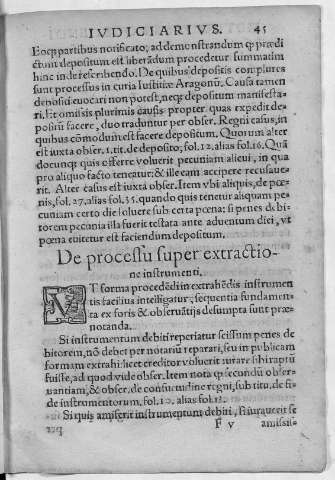 IVDICIARIVS. 45
Eoq; partibus notificato, ad demonstrandum q; prædi
ctum depositum est liberādum procedetur summatim
hinc inde rescribendo. De quibus depositis complures
sunt processus in curia Iustitiæ Aragonū. Causa tamen
denosici euocari non potest, neq; depositum manifesta-
ri. Et omissis plurimis causis propter quas expedit de-
positū facere, duo traduntur per obser. Regni casus, in
quibus cōmodum est facere depositum. Quorum alter
est iuxta obser. 1. tit. de deposito, fol. 12. alias fol. 16. Quā
docunq; quis offerre voluerit pecuniam alicui, in qua
pro aliquo facto teneatur: & ille eam accipere recusaue-
rit. Alter casus est iuxta obser. Item vbi aliquis, de pœ-
nis, fol. 27. alias fol. 35. quando quis tenetur aliquam pe-
cuniam certo die soluere sub certa pœna: si penes debi-
torem pecunia illa fuerit testata ante aduentum diei, vt
pœna euitetur est faciendum depositum.
De processu super extractio-
ne instrumenti.
VT forma procedēdi in extrahēdis instrumen
tis facilius intelligatur, sequentia fundamen-
ta ex foris & obseruātijs desumpta sunt præ-
notanda.
Si instrumentum debiti reperiatur scissum penes de
bitorem, nō debet per notariū reparari, seu in publicam
formam extrahi: licet creditor voluerit iurare sibi raptū
fuisse, ad quod vide obser. Item nota q; secundū obser-
uantiam, & obser. de consuetudine regni, sub titu. de fi-
de instrumentorum, fol. 10. alias fol. 13.
Si quis amiserit instrumentum debiti, & iurauerit se
F v amissis-